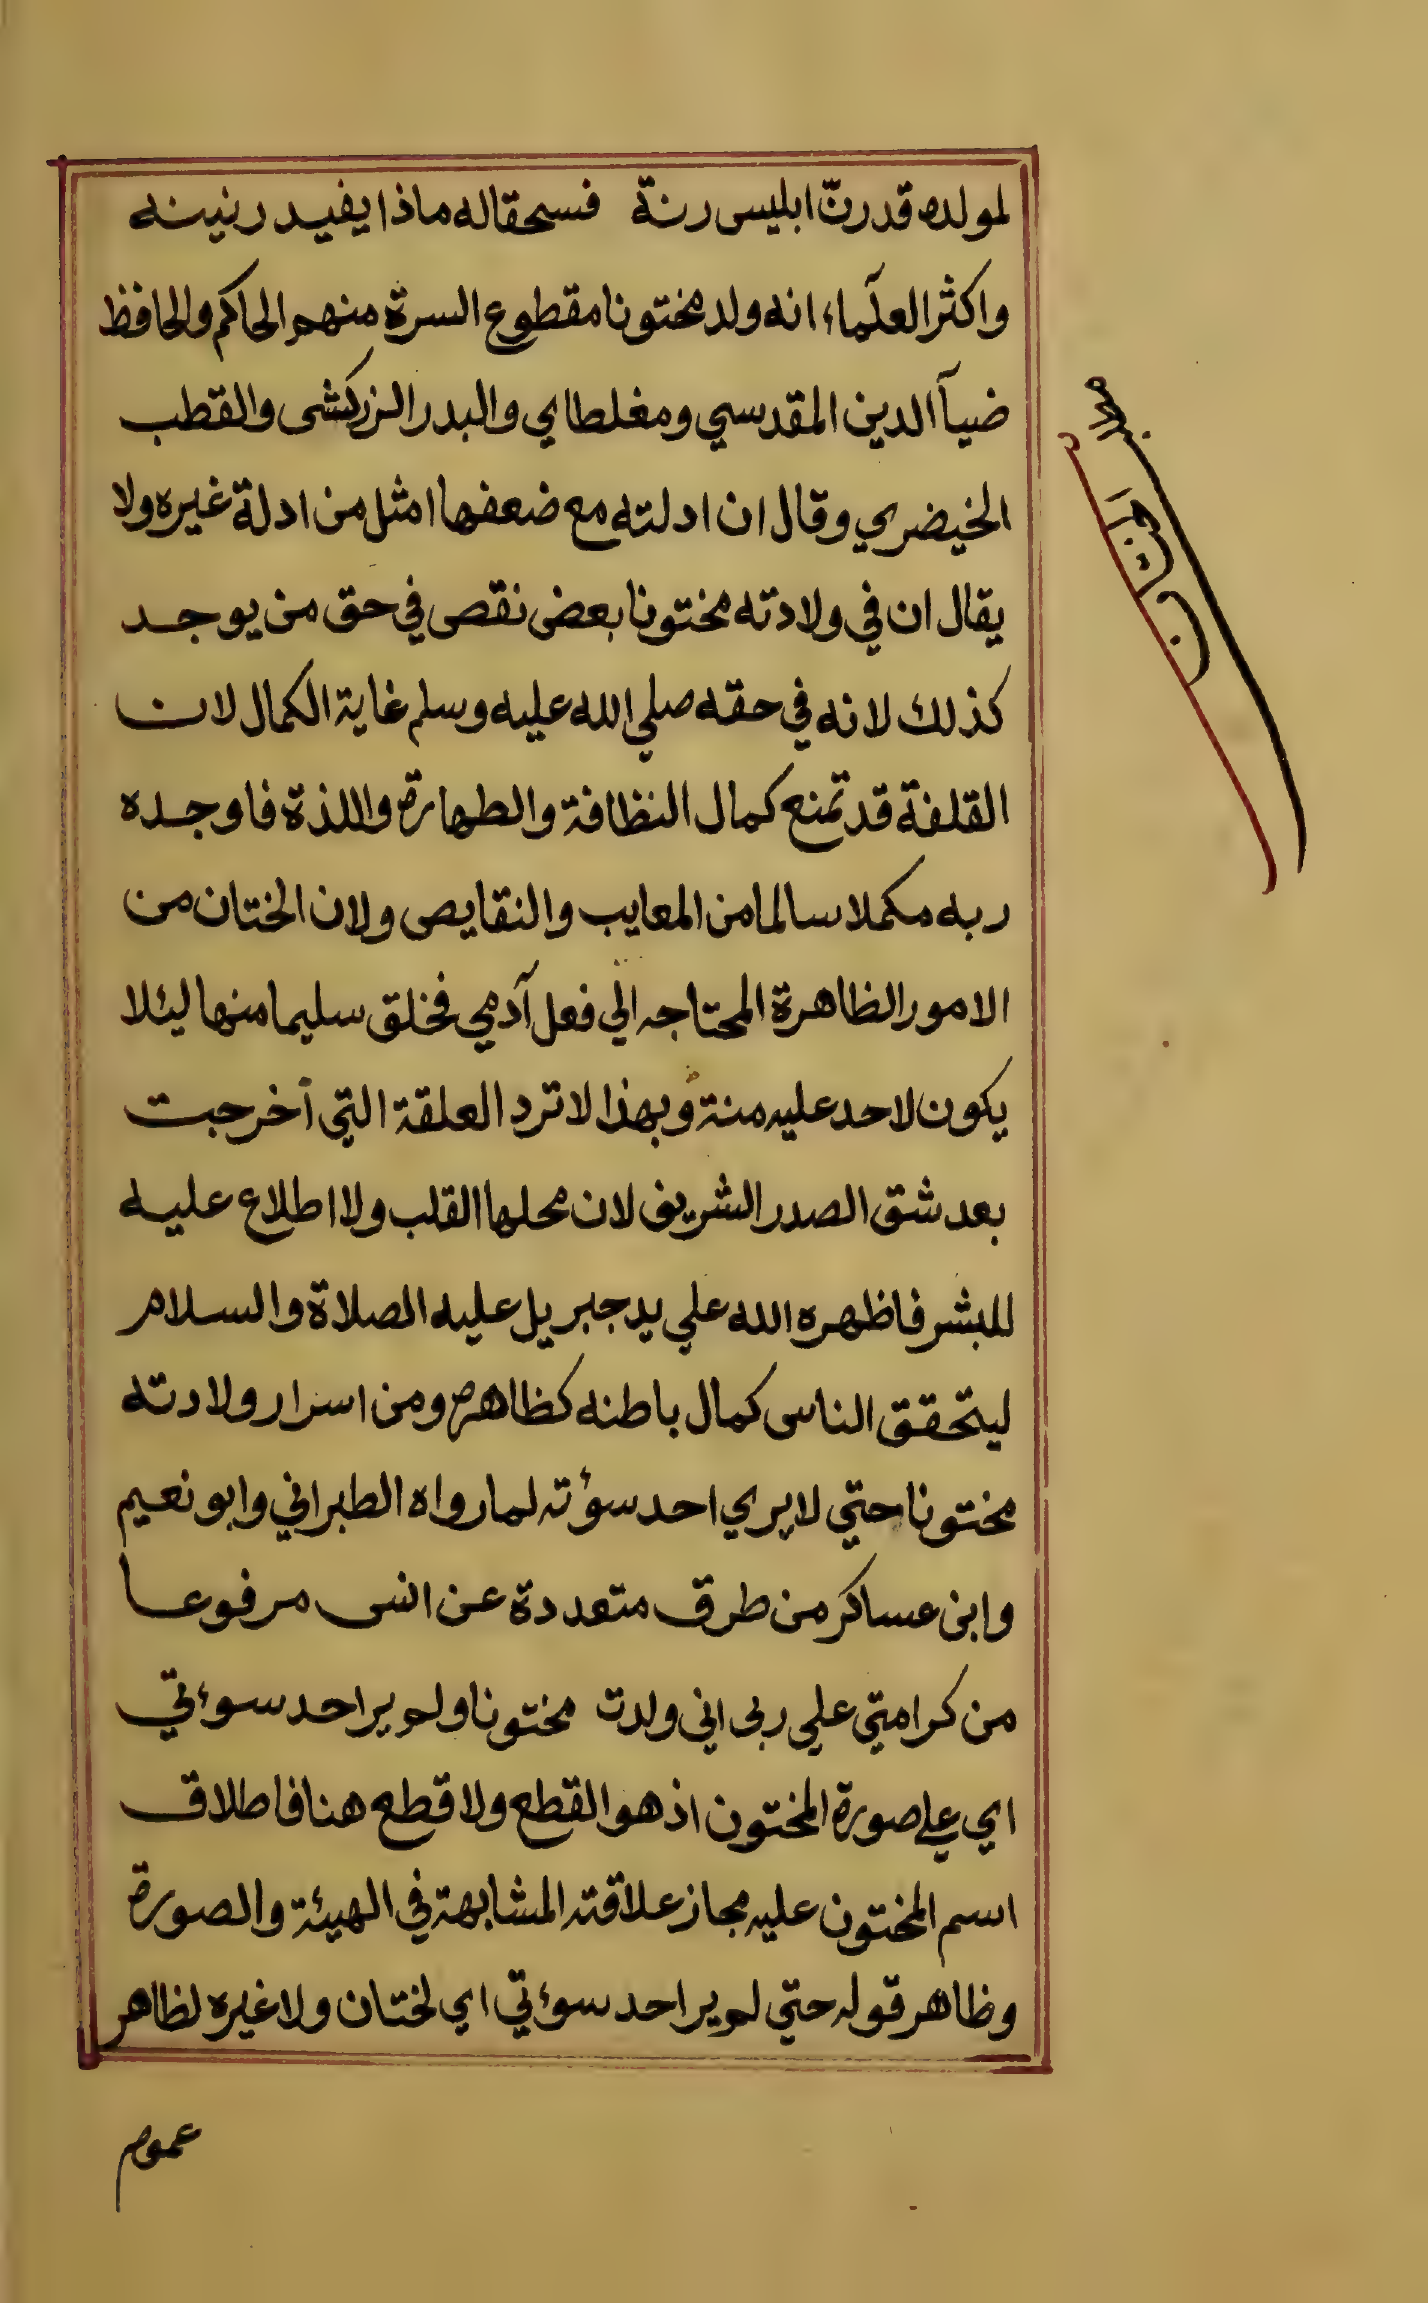 لمولده قد رنّ ابليس رنة فسحقا له ماذا يفيد رنينه
واكثر العلمآء انه ولد مختونا مقطوع السرة منهم الحاكم والحافظ
ضيآ الدين المقدسي ومغلطاي والبدر الزركشى والقطب
الخيضري وقال ان ادلته مع ضعفها امثل من ادلة غيره ولا
يقال ان في ولادته مختونا بعض نقص في حق من يوجد
كذلك لانه في حقه صلي الله عليه وسلم غاية الكمال لان
القلفة قد تمنع كمال النظافة والطهارة واللذة فاوجده
ربه مكملا سالما من المعايب والنقايص ولان الختان من
الامور الظاهرة المحتاجه الي فعل آدمي فخلق سليما منها ليئلا
يكون لاحد عليه منة وبهذا لا ترد العلقة التي أخرجت
بعد شق الصدر الشريف لان محلها القلب ولا اطلاع عليه
للبشر فاظهره الله علي يد جبريل عليه الصلاة والسلام
ليتحقق الناس كمال باطنه كظاهره ومن اسرار ولادته
مختونا حتي لا يري احد سوءته لما رواه الطبراني وابو نعيم
وابن عساكر من طرق متعددة عن انس مرفوعا
من كرامتي علي ربى اني ولدت مختونا ولم ير احد سوءتي
اي علي صورة المختون اذ هو القطع ولا قطع هنا فاطلاق
اسم المختون عليه مجاز علاقته المشابهة في الهيئة والصورة
وظاهر قوله حتي لم ير احد سوءتي اي لختان ولا غيره لظاهر
عموم